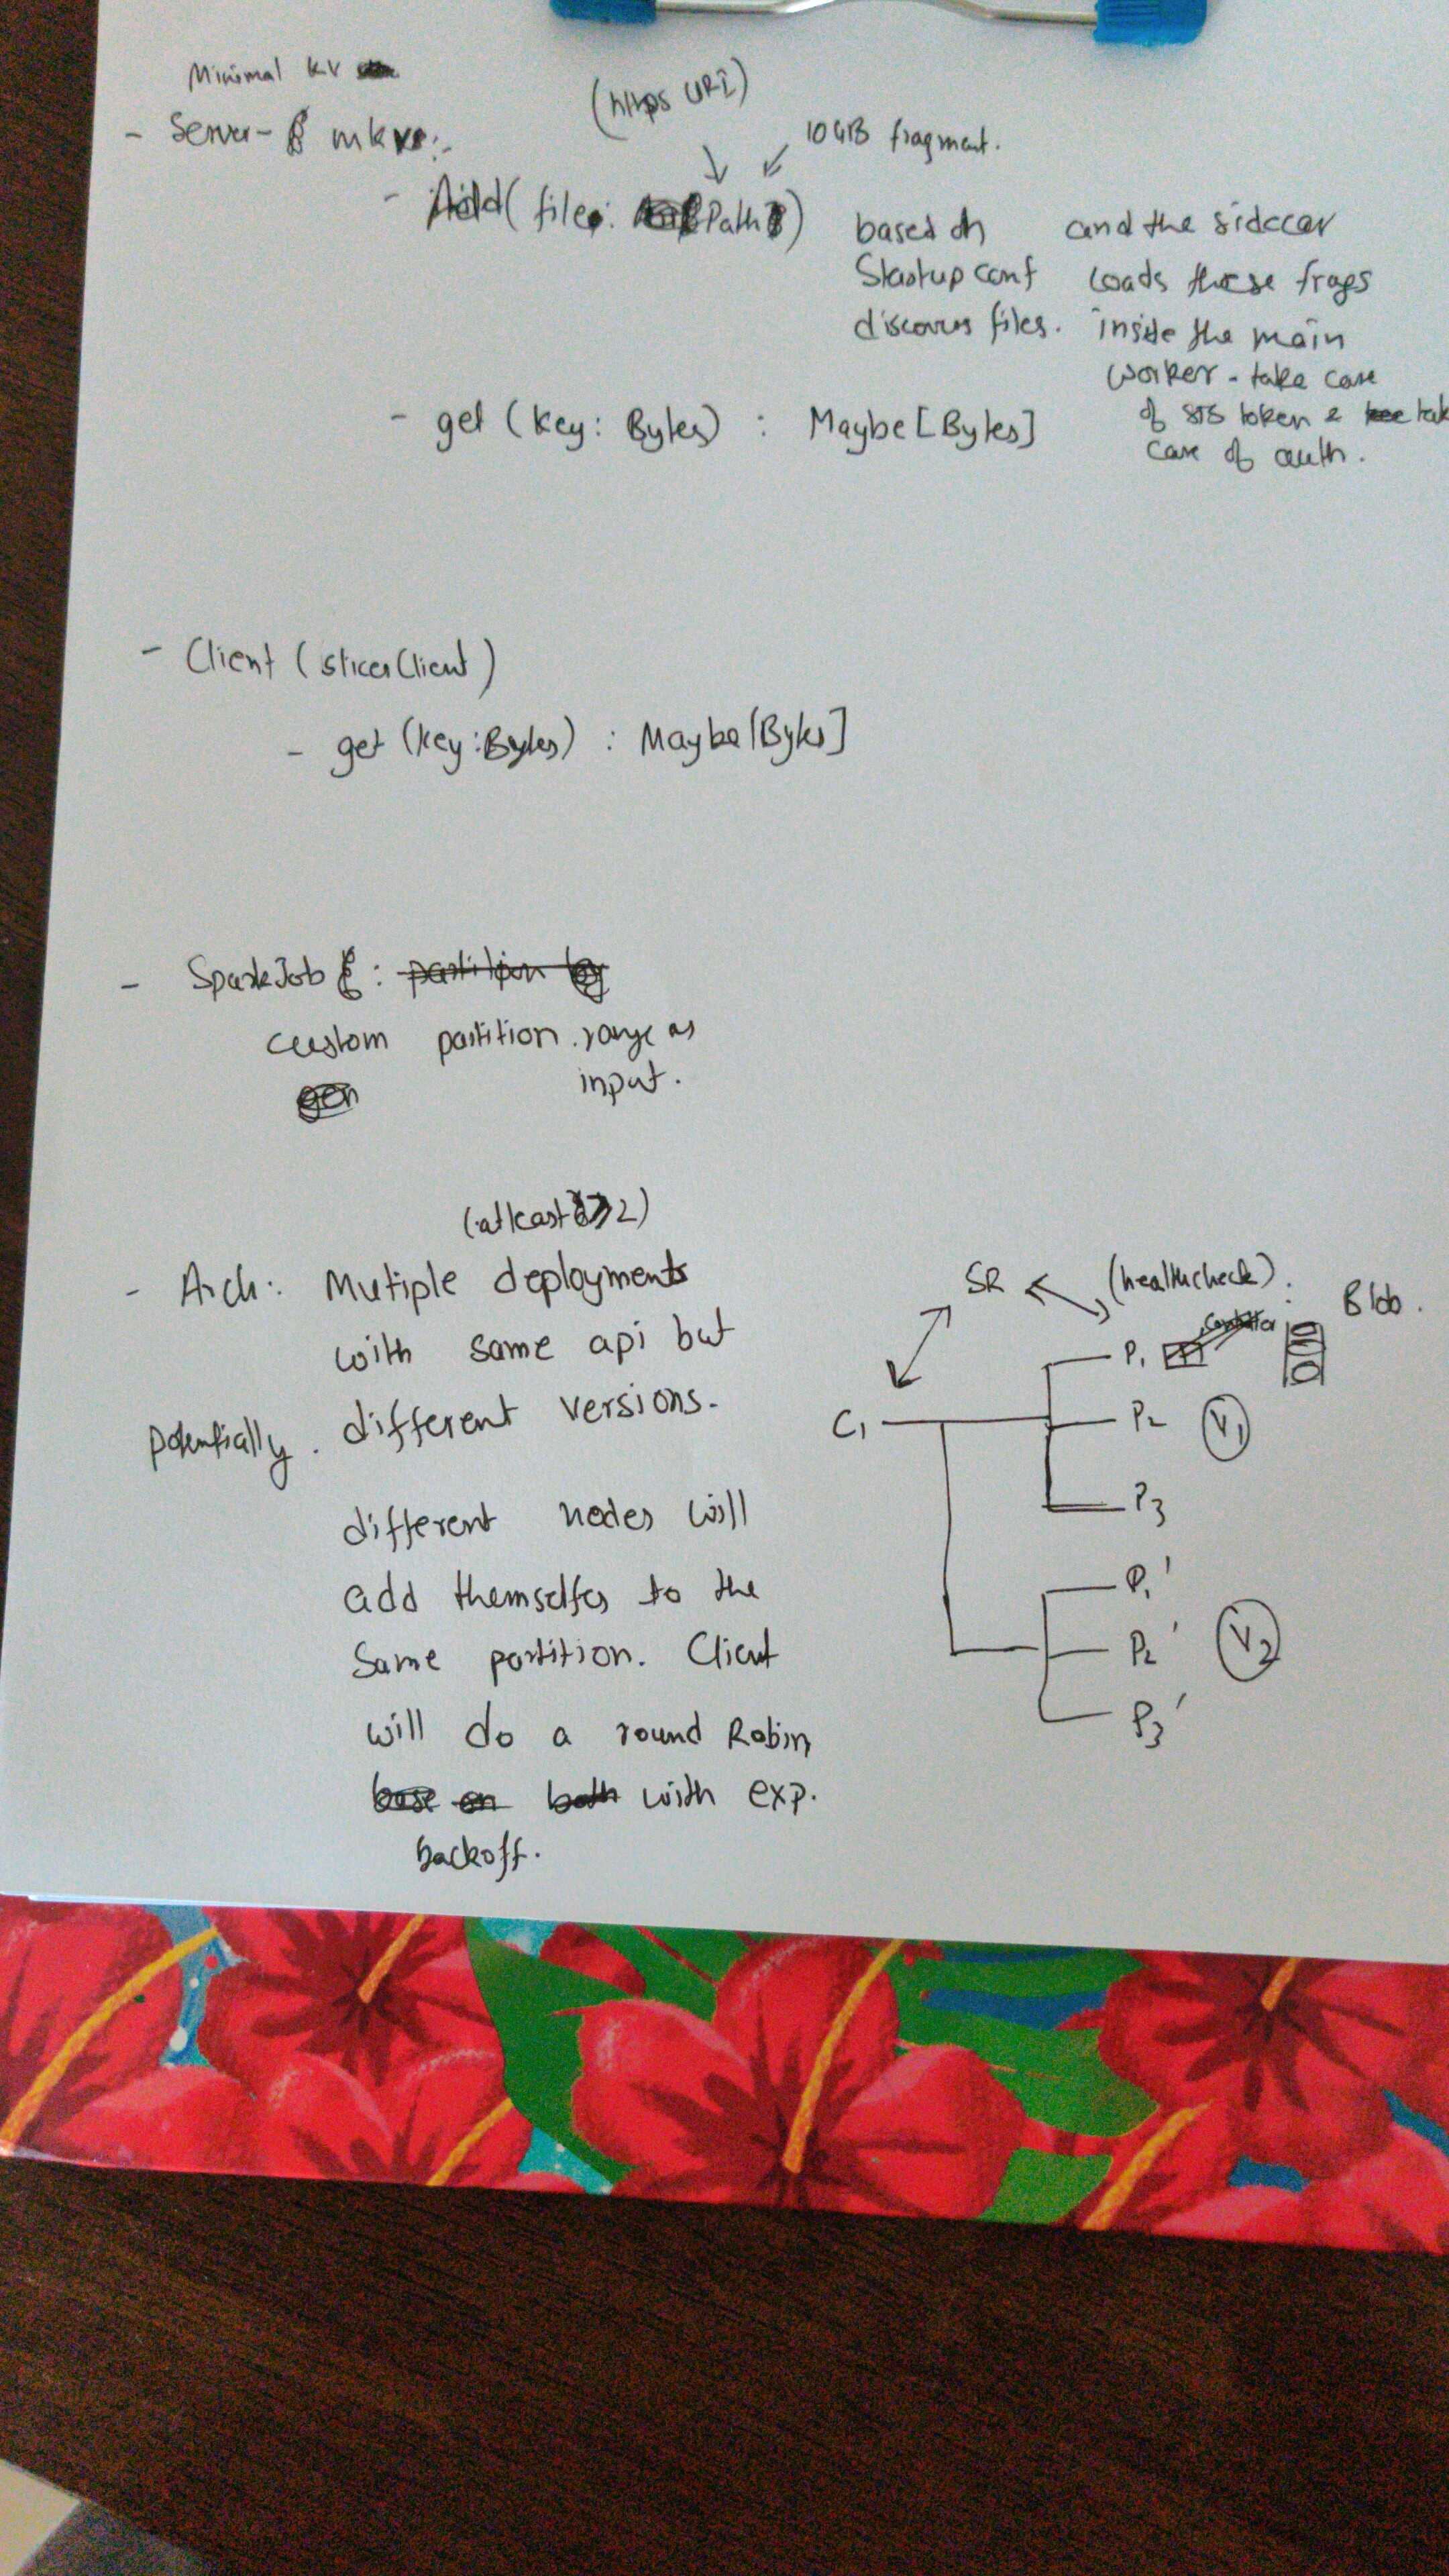 Minimal KV
- Server - mkv :-
(https URI)
10GB fragment.
- Add( file: Path )
based on
Startup conf
discovers files.
and the sidecar
loads these frags
inside the main
worker - take care
of sts token & tak
care of auth.
- get (key: Bytes) : Maybe[Bytes]
- Client (slicerClient)
- get (key:Bytes) : Maybe[Bytes]
- SparkJob : partition by
custom partition range as
input.
gen
(atleast >2)
- Arch: Mutiple deployments
with same api but
potentially. different versions.
different nodes will
add themselfes to the
same partition. Client
will do a round Robin
base on both with exp.
backoff.
SR (healthcheck).
Blob.
C1
P1
P2 V1
P3
P1'
P2' V2
P3'